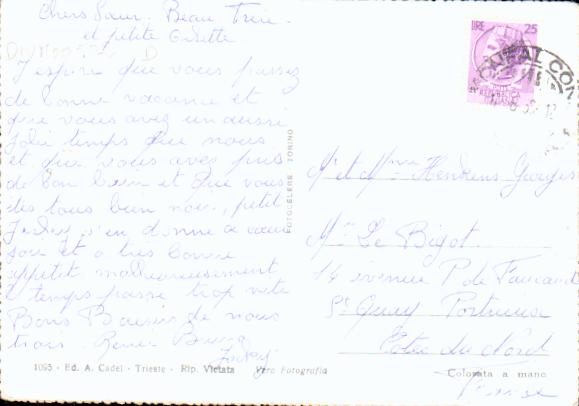 Chers Sœur. Beau Frère.
et petite Ginette
J'espère que vous passez
de bonne vacance et
que vous avez un aussi
Jolie temps que nous
et que vous avez pris
de bon bain et que vous
êtes tous bien noir, petit
Jacky s'en donne a cœur
joie et a très bonne
appétit malheureusement
l temps passe trop vite
Bons Baisers de nous
trois. Renée Bruno
Jacky
LIRE 25
FOTOCELERE TORINO
Mr et Mme Hendrens Georges
Mme Le Bigot.
14 avenue P de
St Quay Portrieux
Côtes du Nord
France
1095 - Ed. A. Cadel - Trieste - Rip. Vietata Vera Fotografia
Colorata a mano